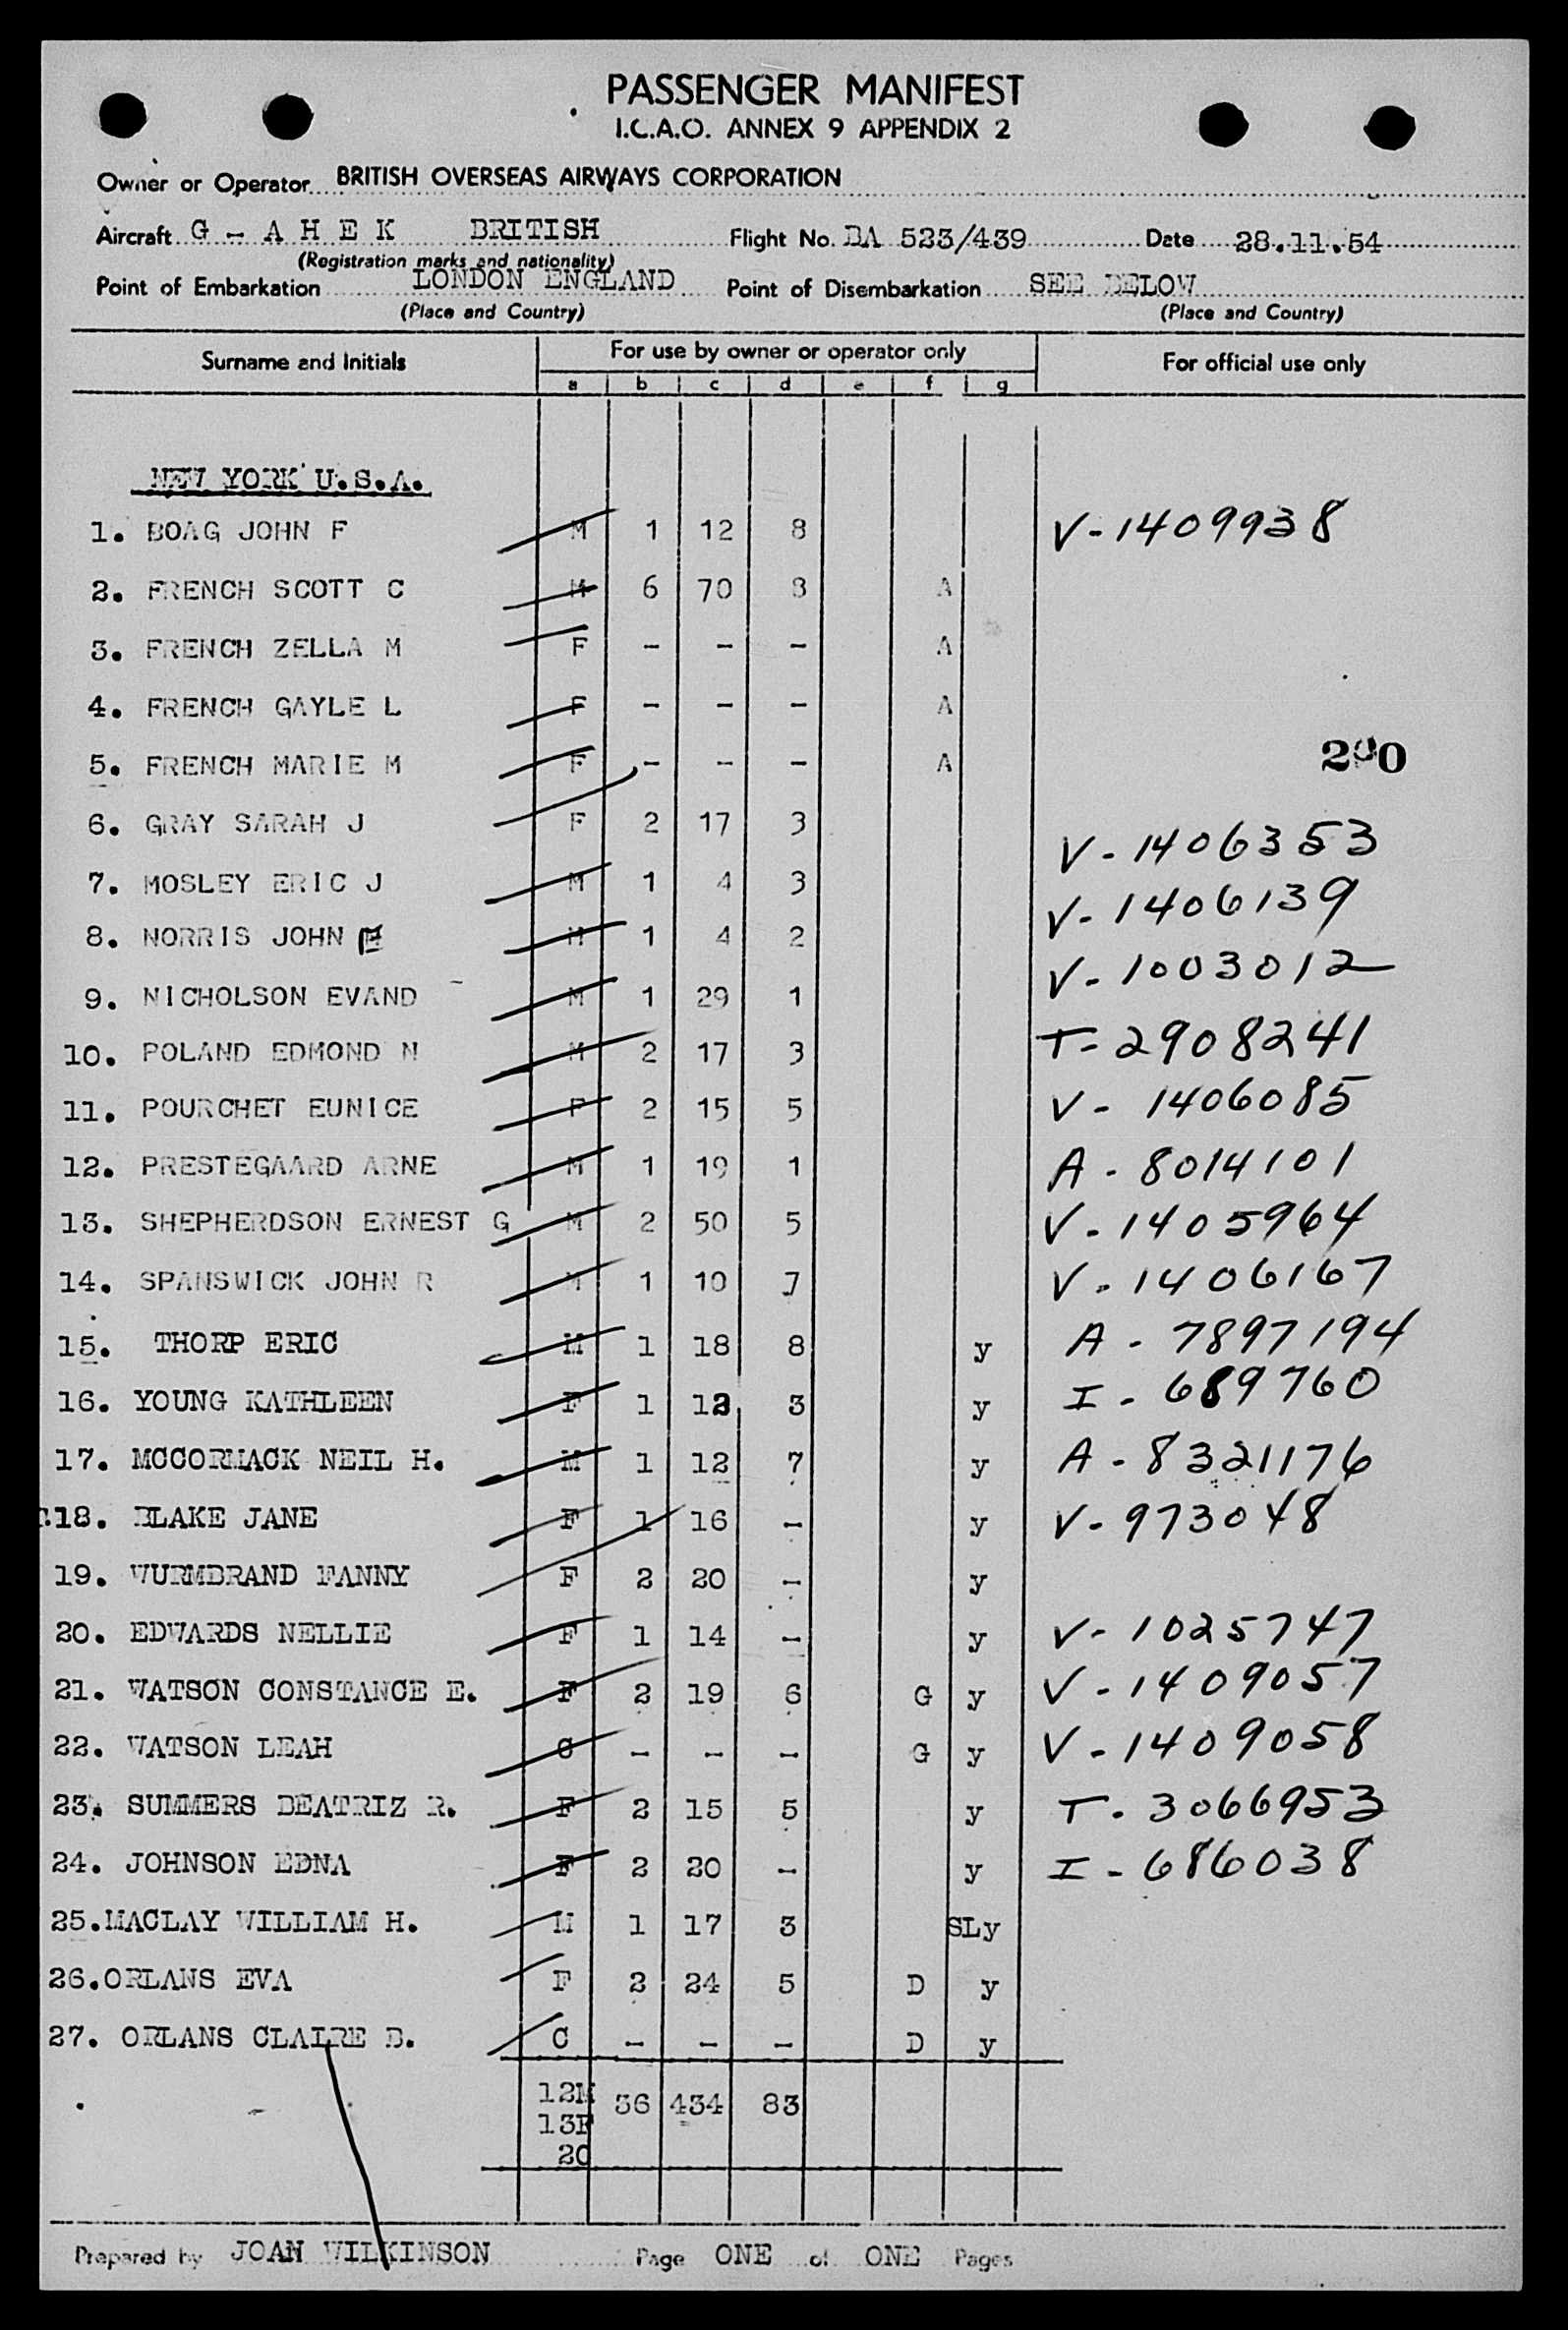 PASSENGER MANIFEST
I.C.A.O. ANNEX 9 APPENDIX 2
Owner or Operator BRITISH OVERSEAS AIRWAYS CORPORATION
Aircraft G - A H E K BRITISH Flight No. BA 523/439 Date 28.11.54
(Registration marks and nationality)
Point of Embarkation LONDON ENGLAND Point of Disembarkation SEE BELOW
(Place and Country) (Place and Country)
Surname and Initials For use by owner or operator only For official use only
a b c d e f g
NEW YORK U.S.A.
1. BOAG JOHN F M 1 12 8 V-1409938
2. FRENCH SCOTT C M 6 70 8 A
3. FRENCH ZELLA M F - - - A
4. FRENCH GAYLE L F - - - A
5. FRENCH MARIE M F - - - A
200
6. GRAY SARAH J F 2 17 3 V-1406353
7. MOSLEY ERIC J M 1 4 3 V-1406139
8. NORRIS JOHN M 1 4 2 V-1003012
9. NICHOLSON EVAND M 1 29 1 T-2908241
10. POLAND EDMOND N M 2 17 3 V-1406085
11. POURCHET EUNICE F 2 15 5 A-8014101
12. PRESTEGAARD ARNE M 1 19 1 V-1405964
13. SHEPHERDSON ERNEST G M 2 50 5 V-1406167
14. SPANSWICK JOHN R M 1 10 7 A-7897194
15. THORP ERIC M 1 18 8 y I-689760
16. YOUNG KATHLEEN F 1 12 3 y A-8321176
17. MCCORMACK NEIL H. M 1 12 7 y V-973048
18. BLAKE JANE F 1 16 - y
19. WURMBRAND FANNY F 2 20 - y
20. EDWARDS NELLIE F 1 14 - y V-1025747
21. WATSON CONSTANCE E. F 2 19 6 G y V-1409057
22. WATSON LEAH C - - - G y V-1409058
23. SUMMERS BEATRIZ R. F 2 15 5 y T-3066953
24. JOHNSON EDNA F 2 20 - y I-686038
25. MACLAY WILLIAM H. M 1 17 3 SLy
26. ORLANS EVA F 2 24 5 D y
27. ORLANS CLAIRE B. C - - - D y
12M 36 434 83
13F
2C
Prepared by JOAN WILKINSON Page ONE of ONE Pages